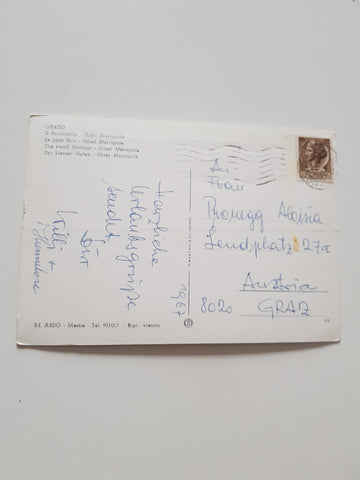 GRADO
Il Porticciolo - Hotel Metropole
Le petit Port - Hôtel Metropole
The small Harbour - Hotel Metropole
Der kleiner Hafen - Hotel Metropole
Herzliche
Urlaubsgrüße
sendet
Dir
Willi +
1987
An
Frau
Pronegg Albina
Lendplatz 27a
Austria
8020 GRAZ
Ed. ARDO - Mestre - Tel. 951017 - Ripr. vietata